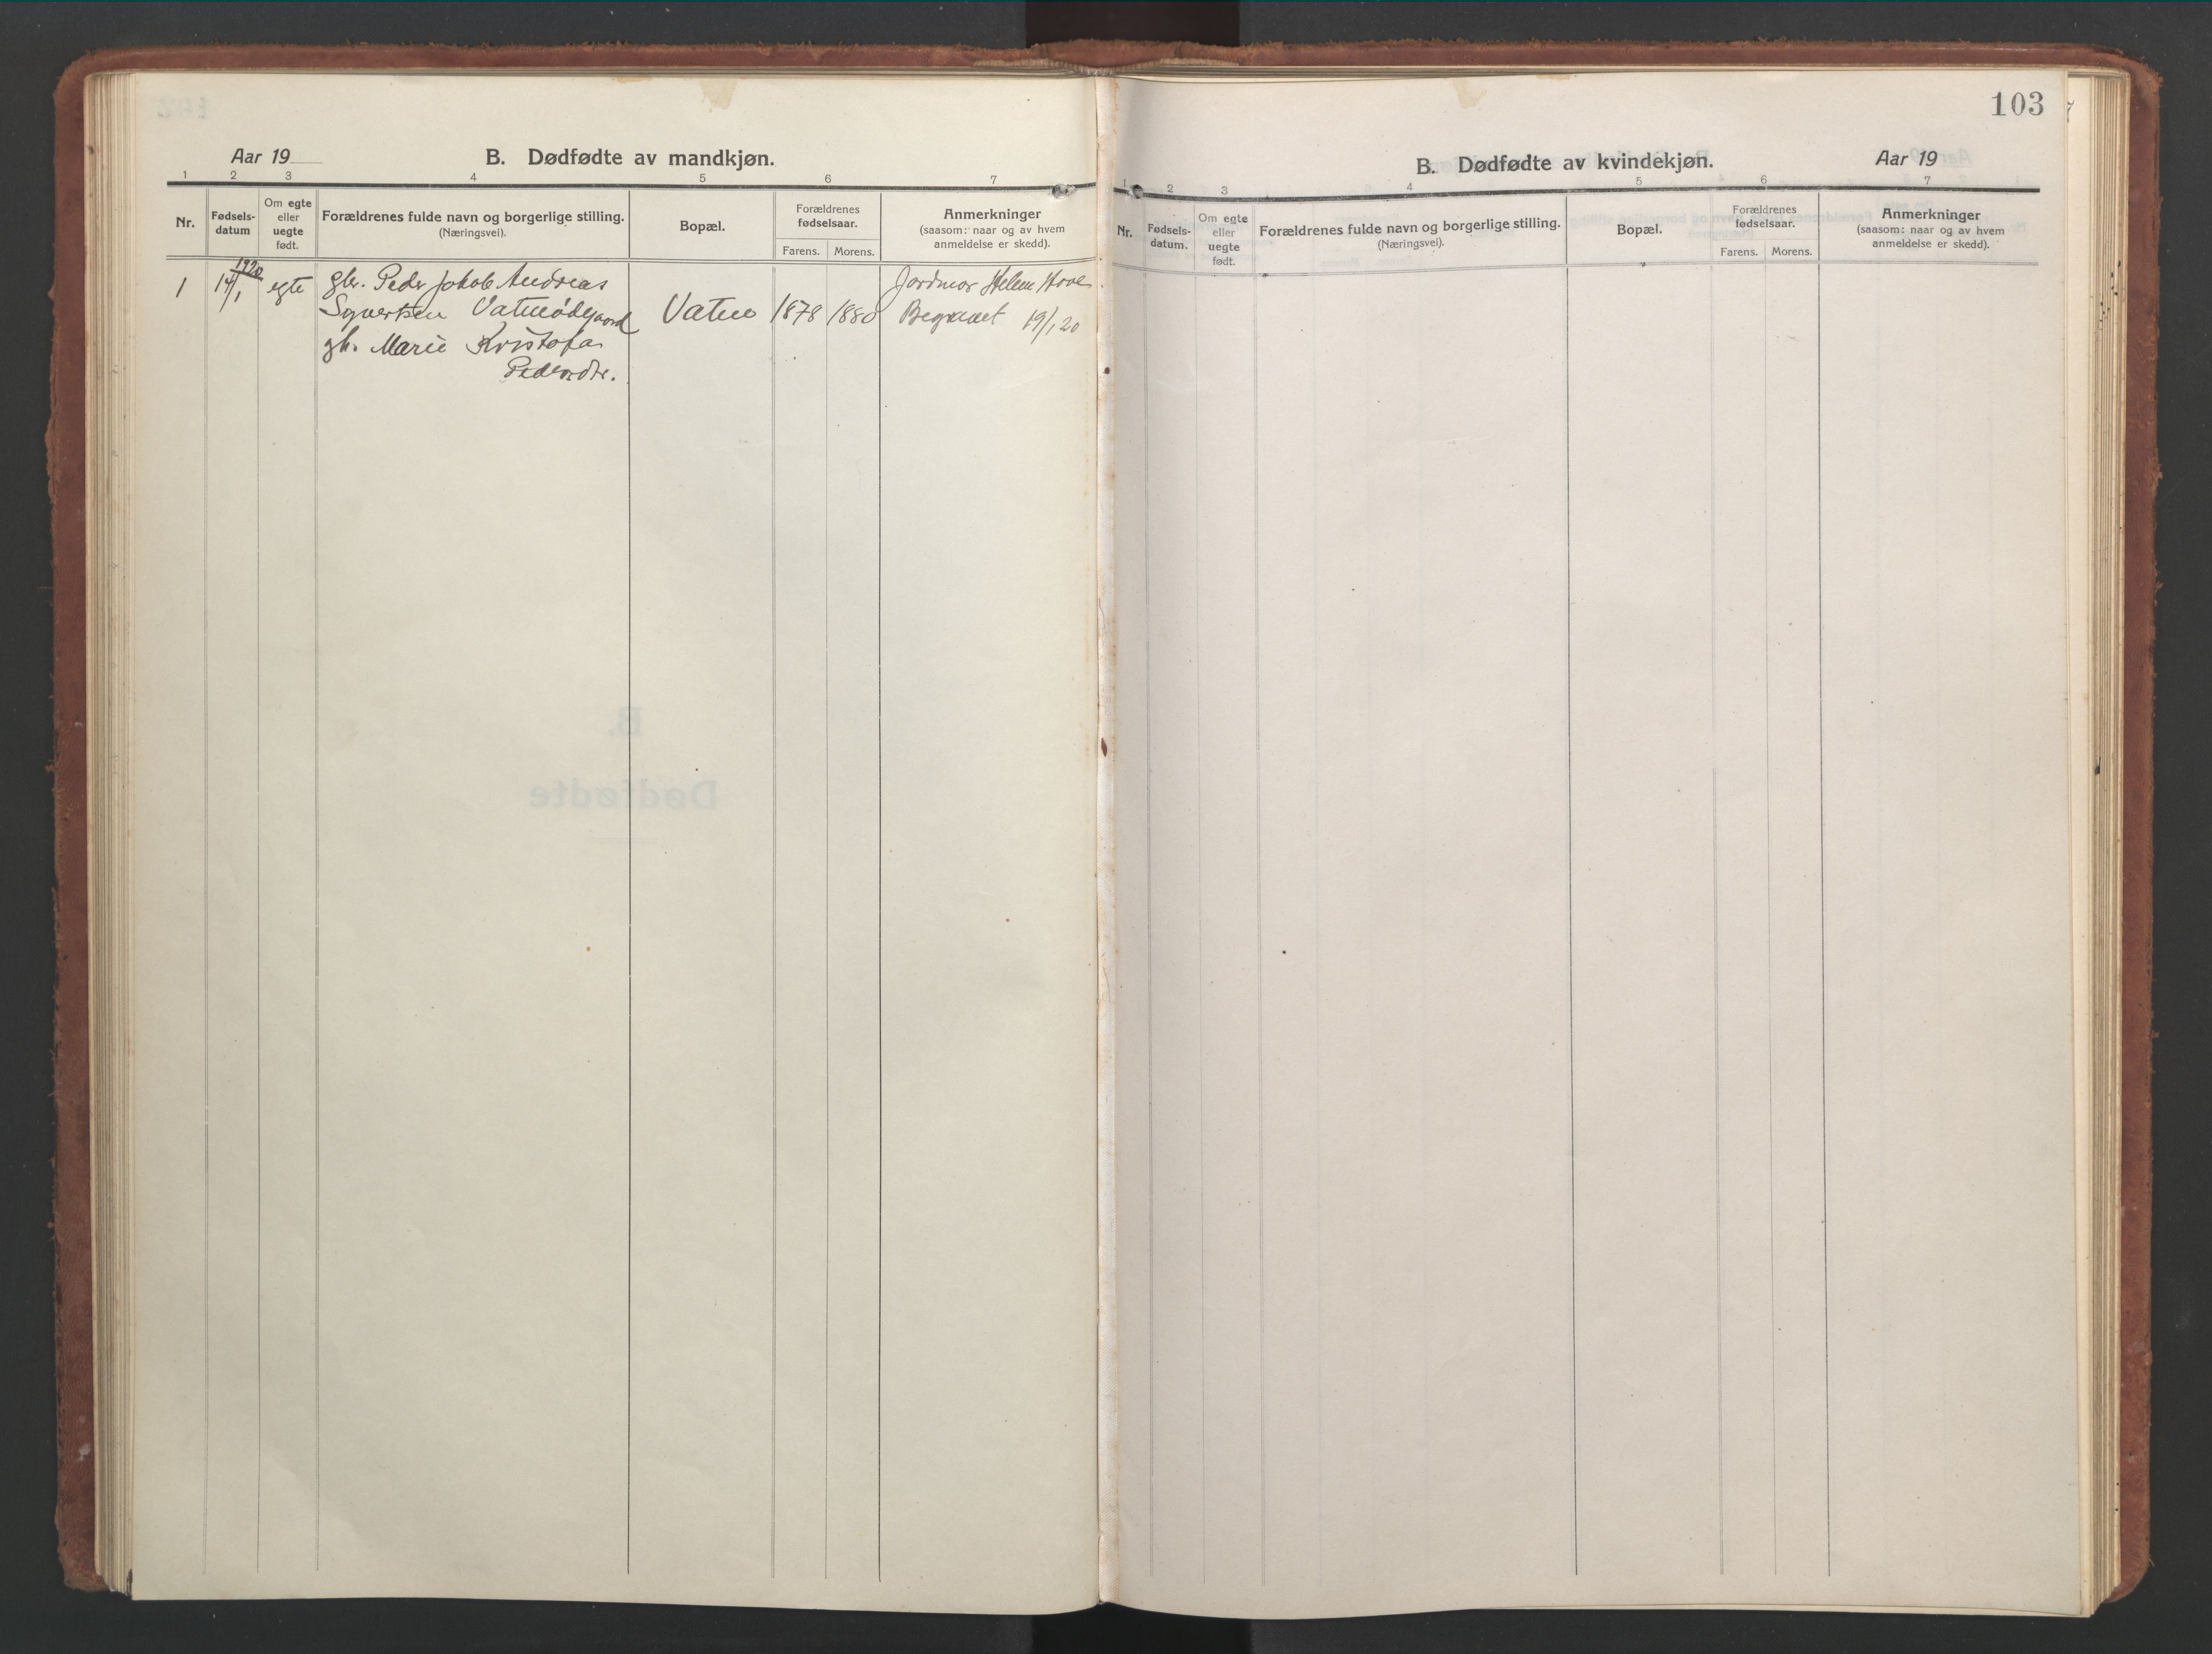 Aar 19
B. Dødfødte av mandkjøn.
1 2 3 4 5 6 7
Nr.
Fødsels-
datum
Om egte
eller
uegte
født.
Forældrenes fulde navn og borgerlige stilling.
(Næringsvei).
Bopæl.
Forældrenes
fødselsaar.
Farens. Morens.
Anmerkninger
(saasom: naar og av hvem
anmeldelse er skedd).
1920
1 14/1 egte gbr. Peder Jakob Andreas Jordmor Helene Hove
Syvertsen Vatneødegaard Vatne 1878 1880 Begravet 19/1 20
gh. Marie Kristofa
Pedersdtr.
103
B. Dødfødte av kvindekjøn.
Aar 19
1 2 3 4 5 6 7
Nr.
Fødsels-
datum.
Om egte
eller
uegte
født.
Forældrenes fulde navn og borgerlige stilling.
(Næringsvei).
Bopæl.
Forældrenes
fødselsaar.
Farens. Morens.
Anmerkninger
(saasom: naar og av hvem
anmeldelse er skedd).